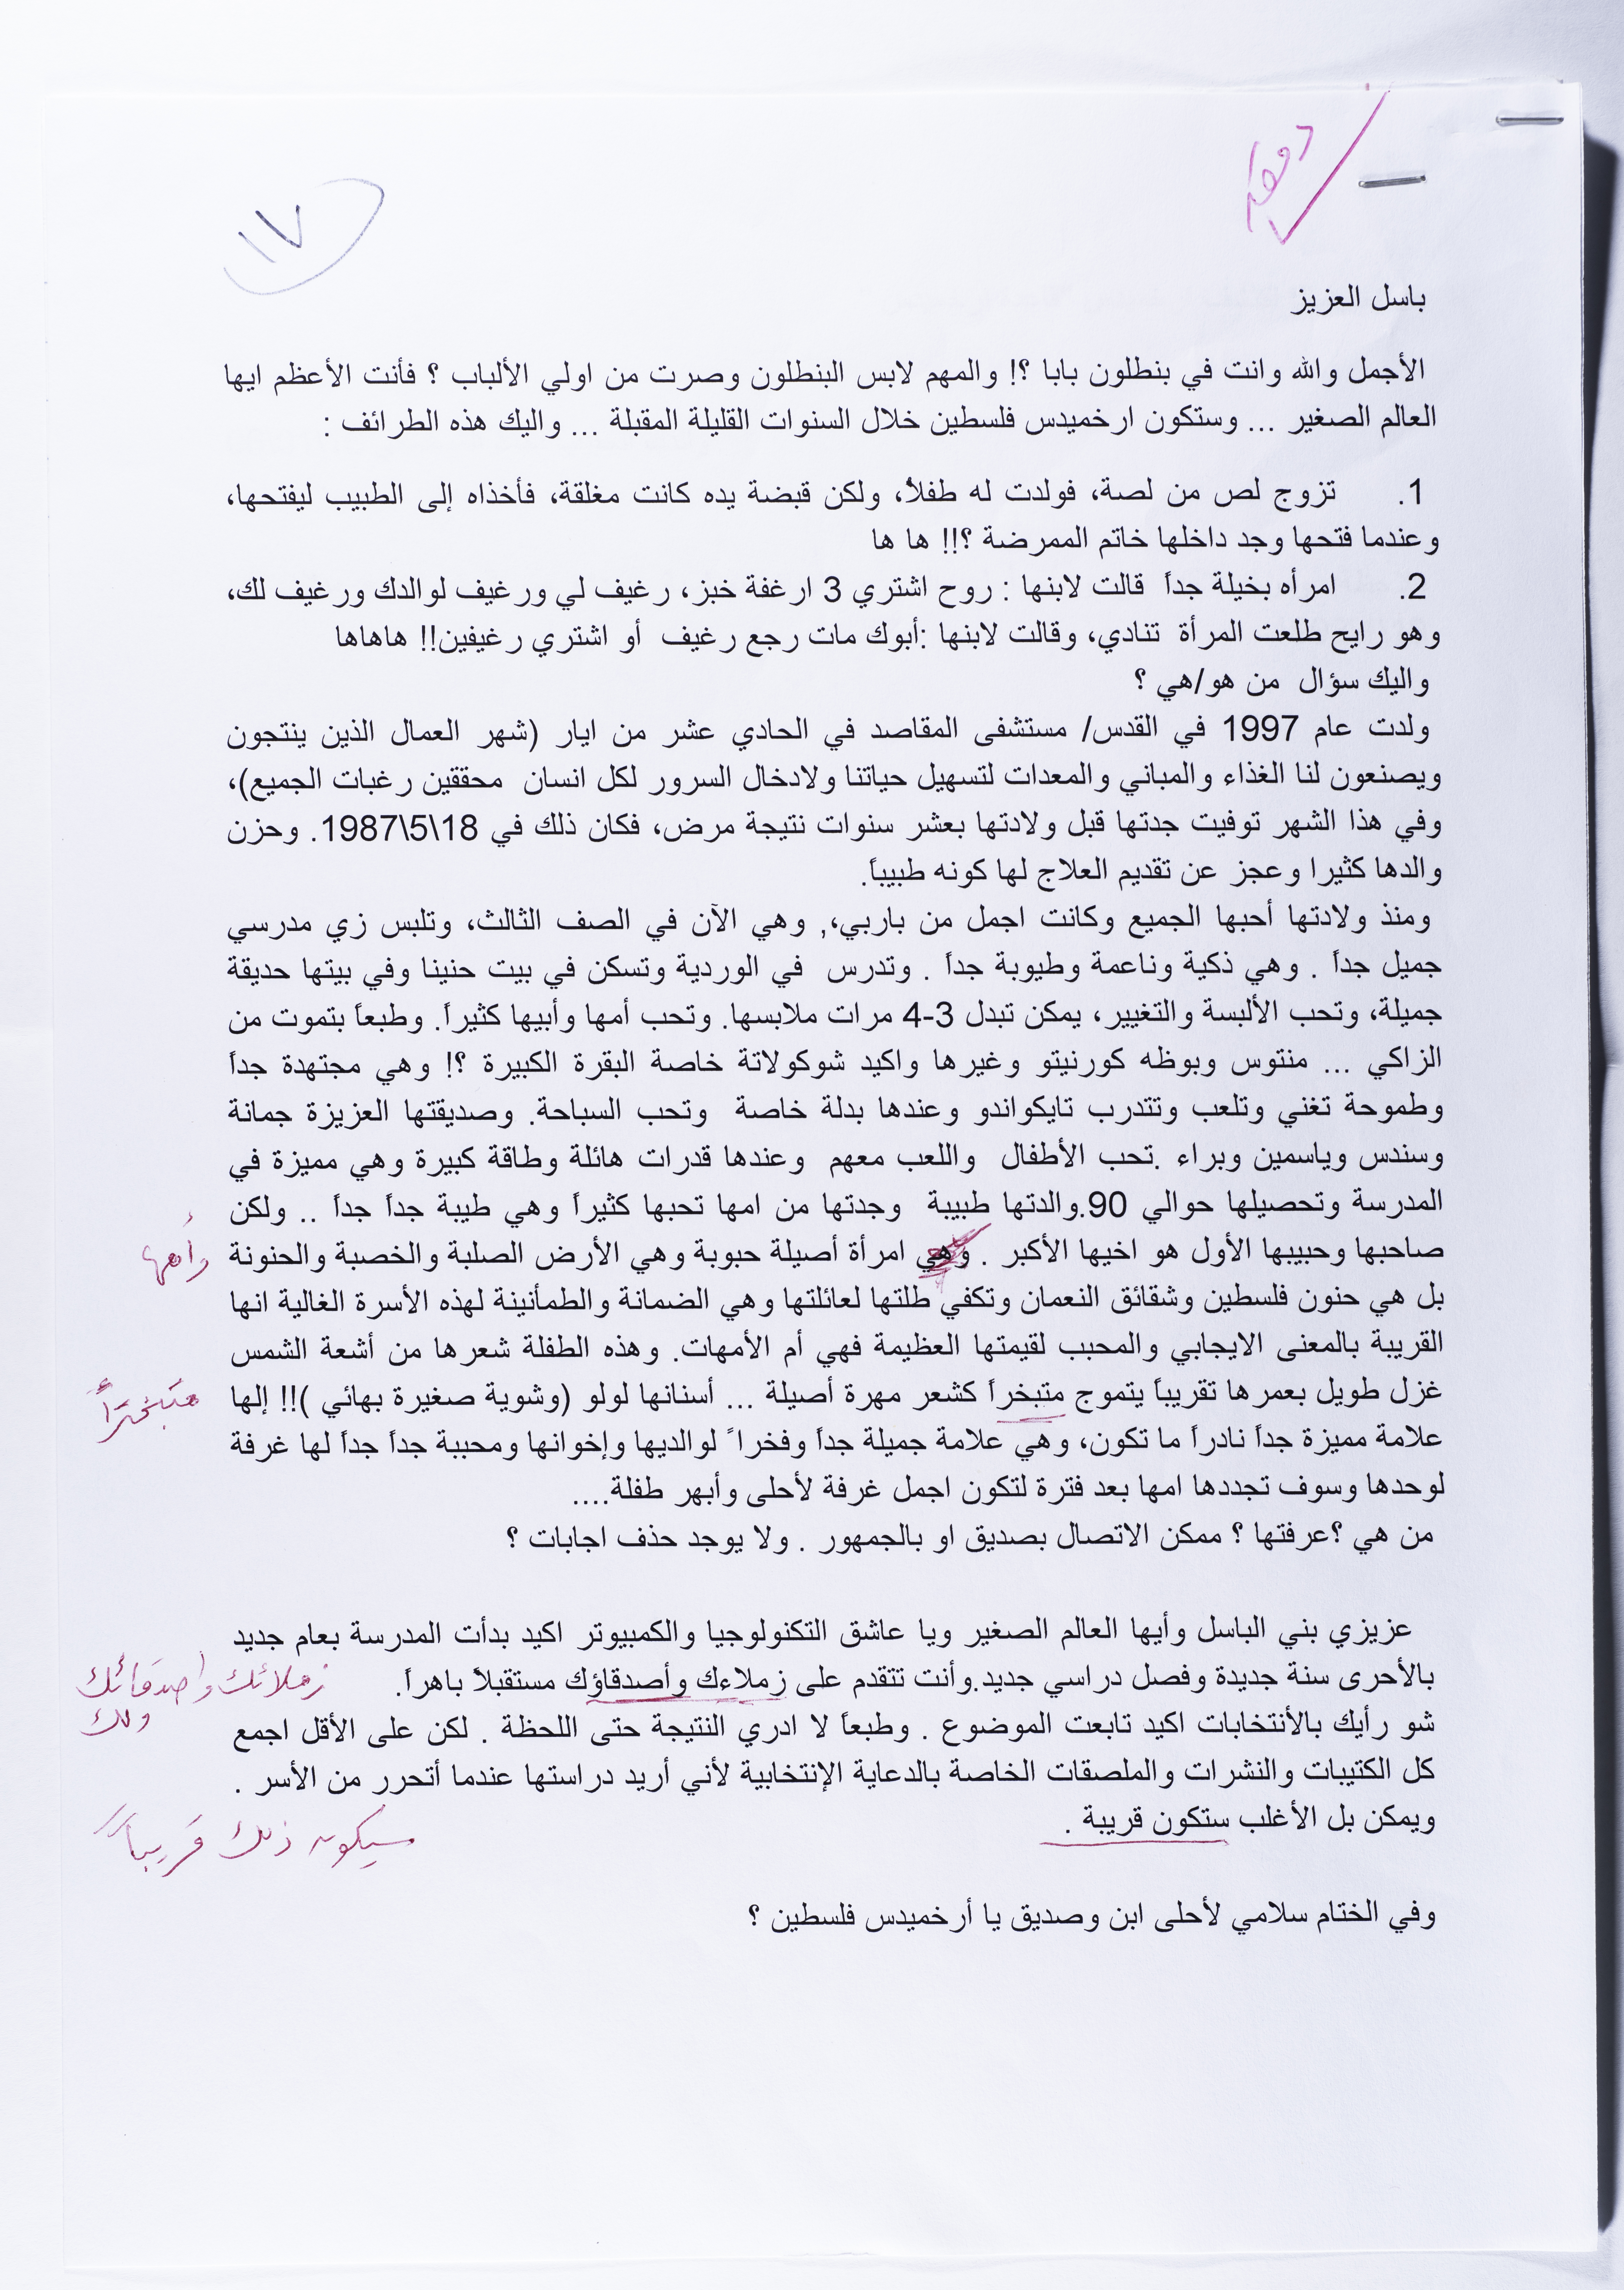 مدققة
١٧
باسل العزيز
الأجمل والله وانت في بنطلون بابا ؟! والمهم لابس البنطلون وصرت من اولي الألباب ؟ فأنت الأعظم ايها
العالم الصغير ... وستكون ارخميدس فلسطين خلال السنوات القليلة المقبلة ... واليك هذه الطرائف :
1. تزوج لص من لصة، فولدت له طفلاً، ولكن قبضة يده كانت مغلقة، فأخذاه إلى الطبيب ليفتحها،
وعندما فتحها وجد داخلها خاتم الممرضة ؟!! ها ها
2. امرأه بخيلة جداً قالت لابنها : روح اشتري 3 ارغفة خبز، رغيف لي ورغيف لوالدك ورغيف لك،
وهو رايح طلعت المرأة تنادي، وقالت لابنها :أبوك مات رجع رغيف أو اشتري رغيفين!! هاهاها
واليك سؤال من هو/هي ؟
ولدت عام 1997 في القدس/ مستشفى المقاصد في الحادي عشر من ايار (شهر العمال الذين ينتجون
ويصنعون لنا الغذاء والمباني والمعدات لتسهيل حياتنا ولادخال السرور لكل انسان محققين رغبات الجميع)،
وفي هذا الشهر توفيت جدتها قبل ولادتها بعشر سنوات نتيجة مرض، فكان ذلك في 18\5\1987. وحزن
والدها كثيرا وعجز عن تقديم العلاج لها كونه طبيباً.
ومنذ ولادتها أحبها الجميع وكانت اجمل من باربي،, وهي الآن في الصف الثالث، وتلبس زي مدرسي
جميل جداً . وهي ذكية وناعمة وطيوبة جداً . وتدرس في الوردية وتسكن في بيت حنينا وفي بيتها حديقة
جميلة، وتحب الألبسة والتغيير، يمكن تبدل 3-4 مرات ملابسها. وتحب أمها وأبيها كثيراً. وطبعاً بتموت من
الزاكي ... منتوس وبوظه كورنيتو وغيرها واكيد شوكولاتة خاصة البقرة الكبيرة ؟! وهي مجتهدة جداً
وطموحة تغني وتلعب وتتدرب تايكواندو وعندها بدلة خاصة وتحب السباحة. وصديقتها العزيزة جمانة
وسندس وياسمين وبراء .تحب الأطفال واللعب معهم وعندها قدرات هائلة وطاقة كبيرة وهي مميزة في
المدرسة وتحصيلها حوالي 90.والدتها طبيبة وجدتها من امها تحبها كثيراً وهي طيبة جداً جداً .. ولكن
صاحبها وحبيبها الأول هو اخيها الأكبر . وهي امرأة أصيلة حبوبة وهي الأرض الصلبة والخصبة والحنونة وأمها
بل هي حنون فلسطين وشقائق النعمان وتكفي طلتها لعائلتها وهي الضمانة والطمأنينة لهذه الأسرة الغالية انها
القريبة بالمعنى الايجابي والمحبب لقيمتها العظيمة فهي أم الأمهات. وهذه الطفلة شعرها من أشعة الشمس
غزل طويل بعمرها تقريباً يتموج متبخراً كشعر مهرة أصيلة ... أسنانها لولو (وشوية صغيرة بهائي )!! إلها متبخترًا
علامة مميزة جداً نادراً ما تكون، وهي علامة جميلة جداً وفخرا ً لوالديها وإخوانها ومحببة جداً جداً لها غرفة
لوحدها وسوف تجددها امها بعد فترة لتكون اجمل غرفة لأحلى وأبهر طفلة....
من هي ؟عرفتها ؟ ممكن الاتصال بصديق او بالجمهور . ولا يوجد حذف اجابات ؟
عزيزي بني الباسل وأيها العالم الصغير ويا عاشق التكنولوجيا والكمبيوتر اكيد بدأت المدرسة بعام جديد
بالأحرى سنة جديدة وفصل دراسي جديد.وأنت تتقدم على زملاءك وأصدقاؤك مستقبلاً باهراً. زملائك وأصدقائك
ولك
شو رأيك بالأنتخابات اكيد تابعت الموضوع . وطبعاً لا ادري النتيجة حتى اللحظة . لكن على الأقل اجمع
كل الكتيبات والنشرات والملصقات الخاصة بالدعاية الإنتخابية لأني أريد دراستها عندما أتحرر من الأسر .
ويمكن بل الأغلب ستكون قريبة . سيكون ذلك قريباً
وفي الختام سلامي لأحلى ابن وصديق يا أرخميدس فلسطين ؟